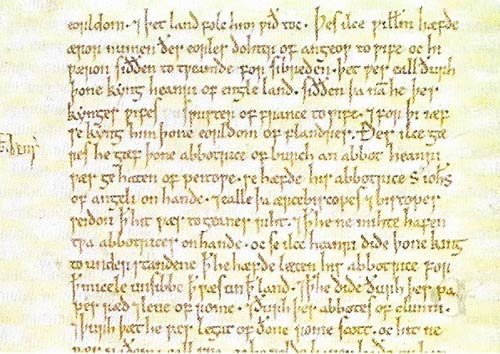 eorldom. ⁊ þet landfolc him wið toc. Þes ilce Will̄m hæfde
æror numen ðes eorles dohter of angeow to wife. oc hi
wæron siððen totweamde for sibreden. þet wes eall ðurh
þone kyng heanri of engleland. siððen þa nā he þes
kynges wifes swuster of france to wife. ⁊ forþi iæf
se kyng him þone eorldom of flandres. Ðes ilce gæ
res he gæf þone abbotrice of burch an abbot heanri
wæs gehaten of peitowe. se hæfde his abbotrice S ioh̄s
of angeli on hande. ⁊ ealle þa ærcebiscopes ⁊ biscopes
seidon ꝥ hit wæs togeanes riht. ⁊ ꝥ he ne mihte hafen
twa abbotrices on hande. oc se ilce heanri dide þone king
to understandene ꝥ he hæfde læten his abbotrice for
ꝥ micele unsibbe ꝥ wes on ꝥ land. ⁊ ꝥ he dide ðurh þes pa
pes ræd ⁊ leue of rome. ⁊ ðurh þes abbotes of clunni.
⁊ þurh þæt he wes legat of ðone rome scott. oc hit ne